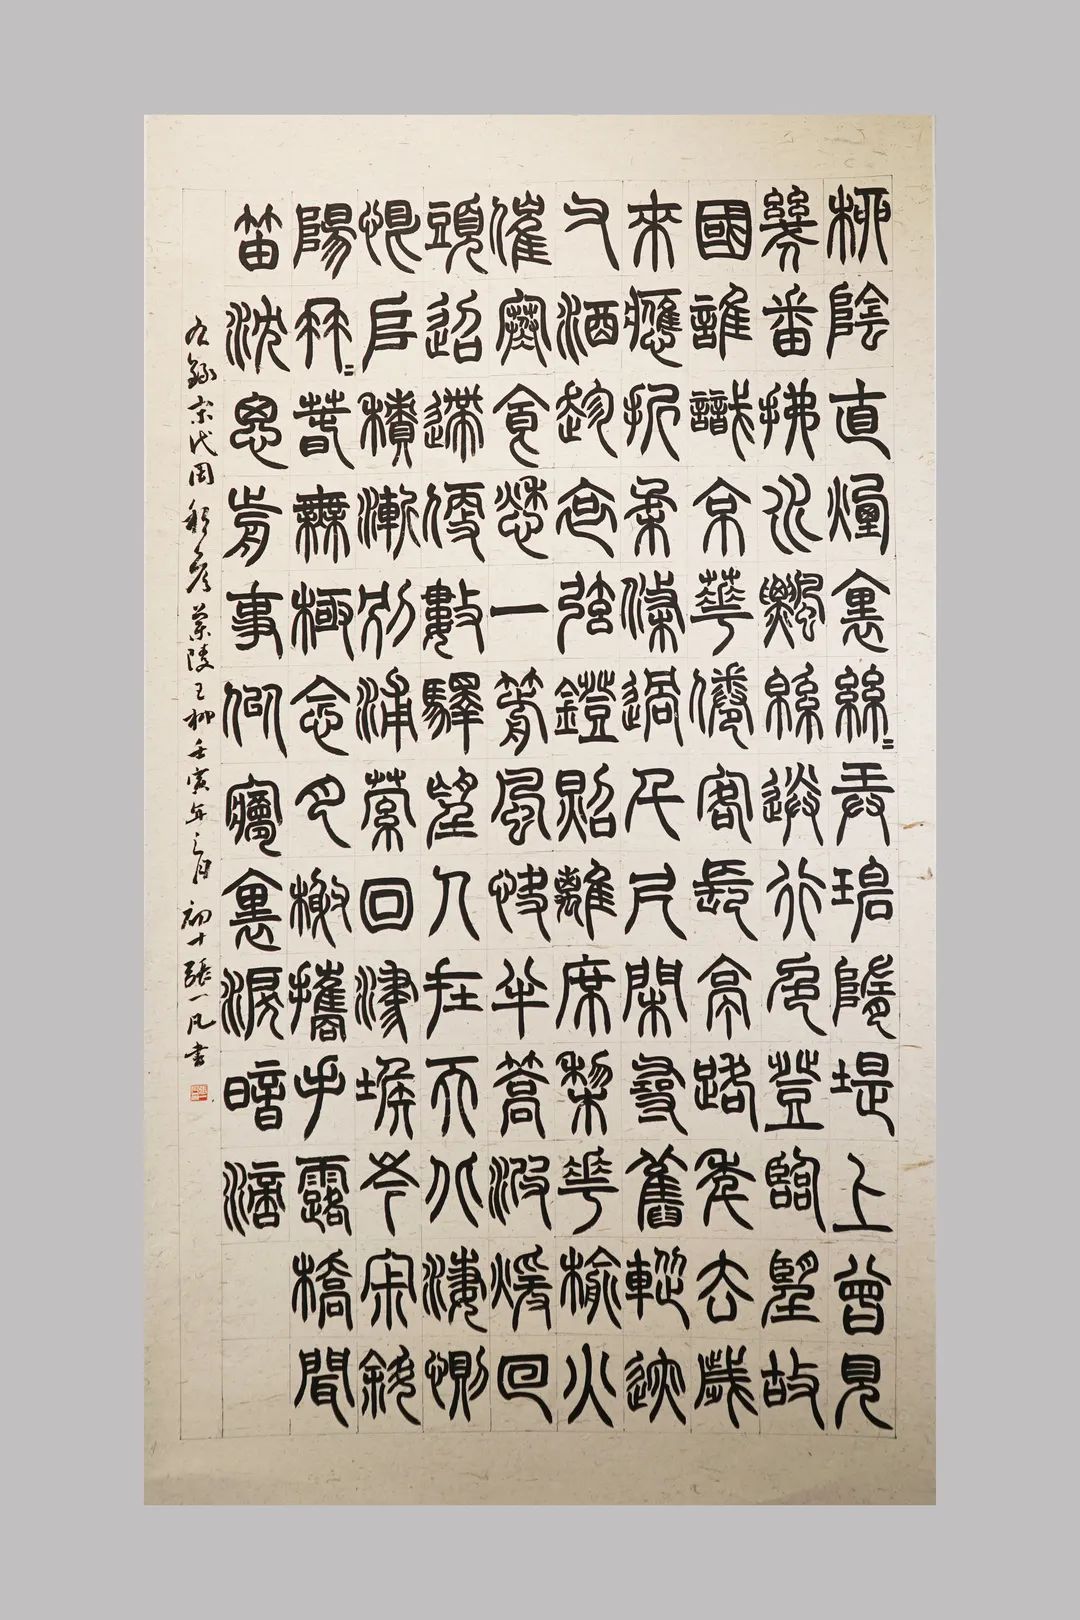 柳陰直煙裏絲〻弄碧隋堤上曾見
幾番拂水飄綿送行色登臨望故
國誰識京華倦客長亭路年去歲
來應折柔條過千尺閑尋舊蹤迹
又酒趁哀弦鐙照離席梨花榆火
催寒食愁一箭風快半篙波暖回
頭迢遞便數驛望人在天北淒惻
恨堆積漸別浦縈回津堠岑寂斜
陽冉〻春無極念月榭攜手露橋聞
笛沈思前事似夢裏淚暗滴
右錄宋代周邦彥蘭陵王柳壬寅年三月初十張一凡書